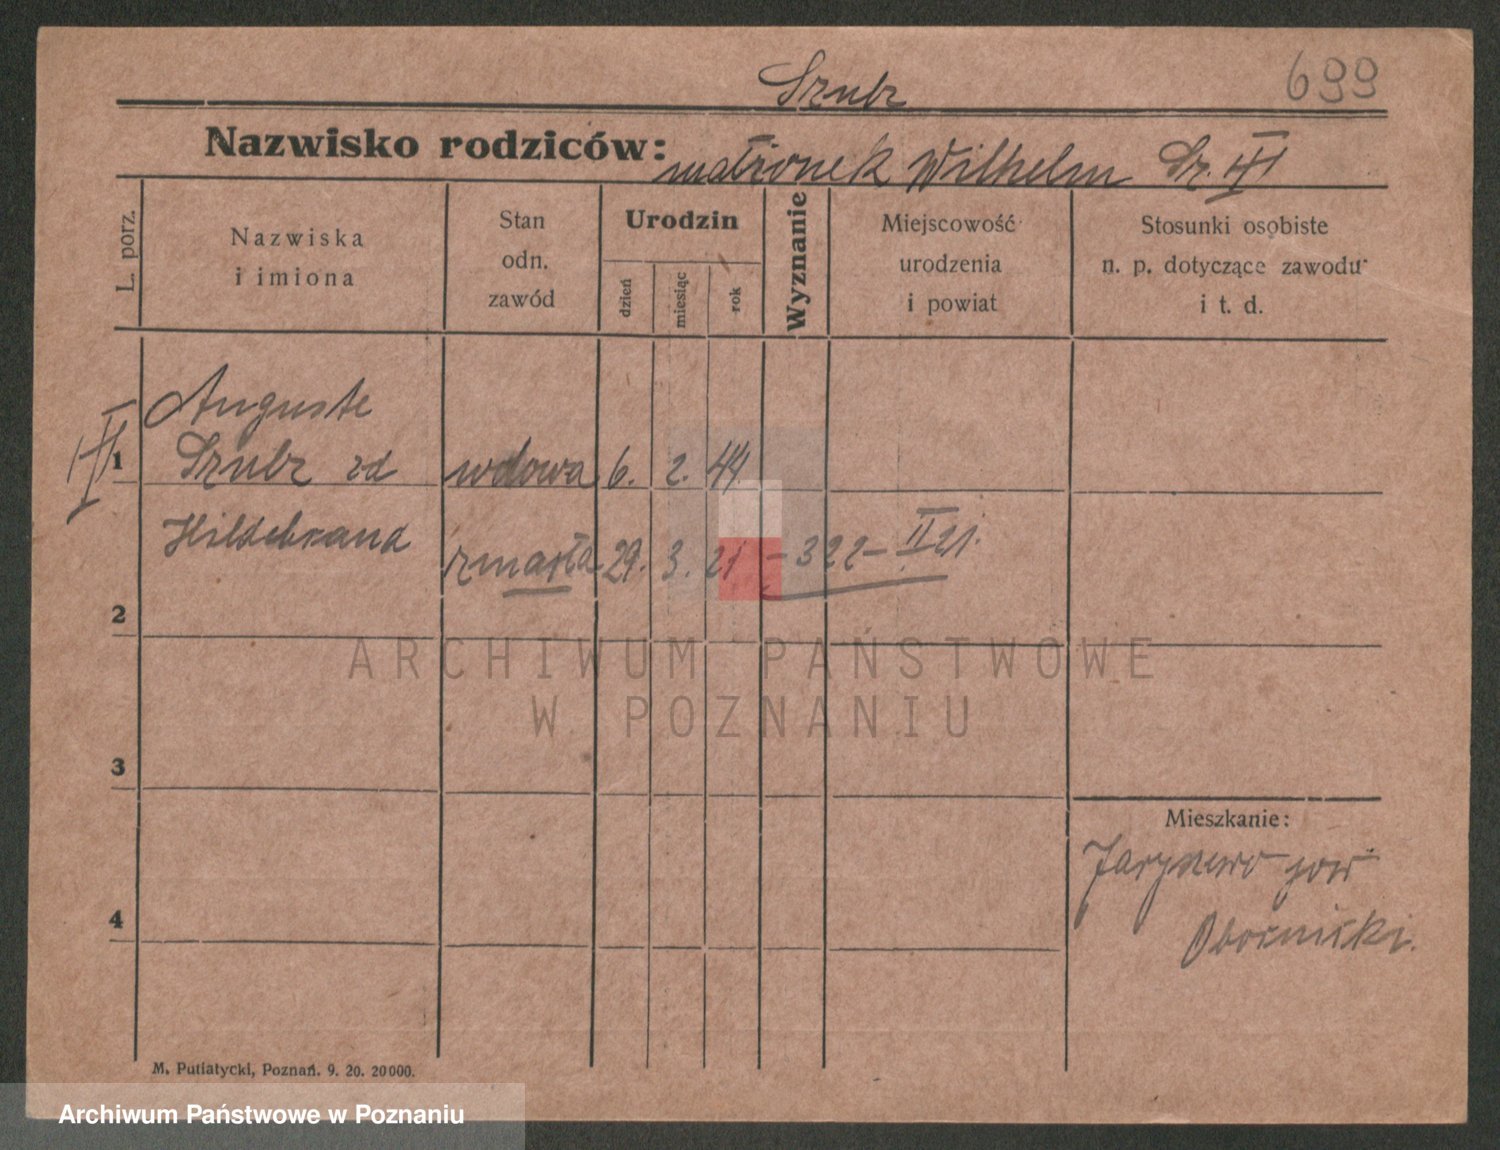 Szulz
699
Nazwisko rodziców: małżonek Wilhelm Sz.
L. porz.
Nazwiska i imiona
Stan odn. zawód
Urodzin
dzień
miesiąc
rok
Wyznanie
Miejscowość urodzenia i powiat
Stosunki osobiste n. p. dotyczące zawodu i t. d.
Auguste
1 Szulz zd wdowa 6. 2. 44.
Hildebrand
zmarła 29. 3. 21 – 322 – II 21.
2
ARCHIWUM PAŃSTWOWE
W POZNANIU
3
Mieszkanie:
pow
4
Obornicki.
M. Putiatycki, Poznań. 9. 20. 20000.
Archiwum Państwowe w Poznaniu